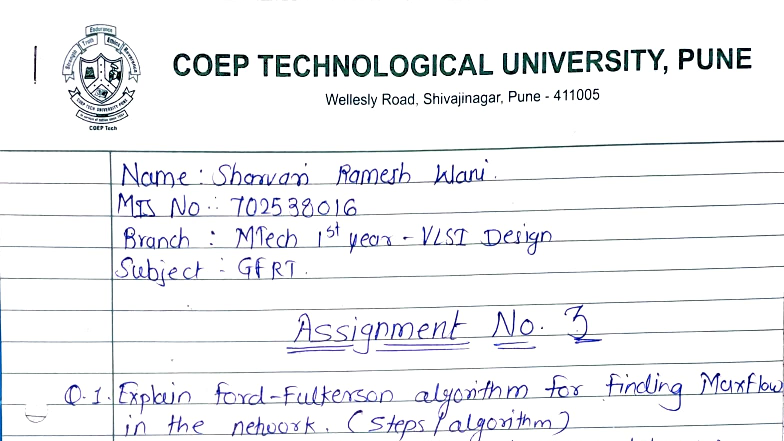 Endurance
Strength Truth Ethics Reverence
COEP TECH UNIVERSITY PUNE
COEP Tech
COEP TECHNOLOGICAL UNIVERSITY, PUNE
Wellesly Road, Shivajinagar, Pune - 411005
Name : Sharvari Ramesh Wani.
MIS No :: 702538016
Branch : MTech 1st year - VLSI Design
Subject : GFRT.
Assignment No. 3
Q.1. Explain ford-Fulkerson algorithm for finding Maxflow
in the network. (Steps / algorithm)